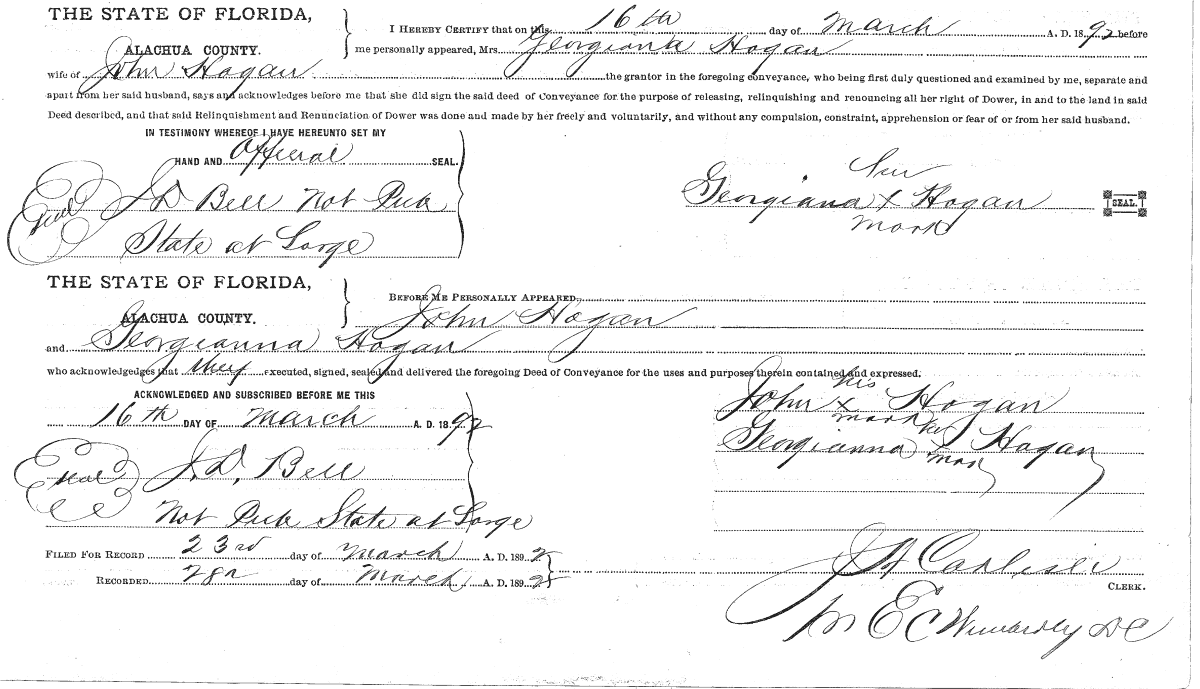 THE STATE OF FLORIDA,
ALACHUA COUNTY.
I HEREBY CERTIFY that on this 16th day of March A. D. 1892 before
me personally appeared, Mrs. Georgiana Hogan
wife of John Hogan the grantor in the foregoing conveyance, who being first duly questioned and examined by me, separate and
apart from her said husband, says and acknowledges before me that she did sign the said deed of Conveyance for the purpose of releasing, relinquishing and renouncing all her right of Dower, in and to the land in said
Deed described, and that said Relinquishment and Renunciation of Dower was done and made by her freely and voluntarily, and without any compulsion, constraint, apprehension or fear of or from her said husband.
IN TESTIMONY WHEREOF I HAVE HEREUNTO SET MY
HAND AND Official SEAL.
Seal J D Bell Not Pub
State at Large
her
Georgiana x Hogan SEAL.
mark
THE STATE OF FLORIDA,
ALACHUA COUNTY.
BEFORE ME PERSONALLY APPEARED
John Hogan
and Georgianna Hogan
who acknowledgedges that they executed, signed, sealed and delivered the foregoing Deed of Conveyance for the uses and purposes therein contained and expressed.
ACKNOWLEDGED AND SUBSCRIBED BEFORE ME THIS
16th DAY OF March A. D. 1892
Seal J. D. Bell
Not Pub State at Large
his
John x Hogan
mark her
Georgianna x Hogan
mark
FILED FOR RECORD 23rd day of March A. D. 1892
RECORDED 28 day of March A. D. 1892
J A Carlisle
CLERK.
E C Wimberly DC